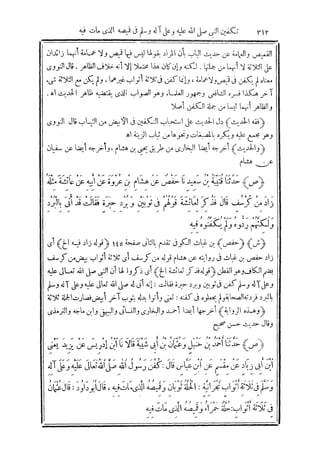 ٣١٢ تكفين النبي صلى الله عليه وعلى آله وسلم في قميصه الذى مات فيه
القميص والعمامة عن حديث الباب بأن المراد بقولها ليس فيها قميص ولا عمامة أنهما زائدان
على الثلاثة لا أنهما من جملتها . لكنه وإن كان هذا محتملا إلا أنه خلاف الظاهر . قال النووى
معناه لم يكفن فى قميص ولا عمامة . وإنما كفن فى ثلاثة أثواب غيرهما . ولم يكن مع الثلاثة شىء
آخر هكذا فسره الشافعى وجمهور العلماء. وهو الصواب الذى يقتضيه ظاهر الحديث اه.
والظاهر أنهما ليسا من جملة الكفن أصلا
﴿فقه الحديث﴾ دل الحديث على استحباب التكفين فى الأبيض من الثياب قال النووى
وهو مجمع عليه ويكره بالمصبغات ونحوها من ثياب الزينة اه
﴿والحديث﴾ أخرجه أيضا البخارى من طريق يحيى بن هشام. وأخرجه أيضا عن سفيان
عن هشام
﴿ص﴾ حَدَّثَنَا قُتَيْبَةُ بْنُ سَعِيدٍ نَا حَفْصٌ عَنْ هِشَامِ بْنِ عُرْوَةَ عَنْ أَبِيهِ عَنْ عَائِشَةَ مِثْلَهُ
زَادَ مِنْ كُرْسُفٍ قَالَ فَذُكِرَ لِعَائِشَةَ قَوْلُهُمْ فِى ثَوْبَيْنِ وَ بُرْدِ حِبَرَةٍ فَقَالَتْ قَدْ أُتِىَ بِالْبُرْدِ
وَلَكِنَّهُمْ رَدُّوهُ وَلَمْ يُكَفِّنُوهُ فِيهِ
﴿ش﴾ ﴿حفص﴾ بن غياث الكوفى تقدم بالثانى صفحة ١٤٥ ﴿قوله زاد فيه الخ﴾ أى
زاد حفص بن غياث فى روايته عن هشام قوله من كرسف أى ثلاثة أثواب بيض من كرسف
بضم الكاف وهو القطن ﴿قوله فذكر لعائشة الخ﴾ أى ذكروا لها أن النبى صلى الله تعالى عليه
وعلى آله وسلم كفن فى ثوبين وبرد حبرة فقالت : إنه أتى له صلى الله تعالى عليه وعلى آله وسلم
بالبرد فرده الصحابة ولم يجعلوه فى كفنه : تعنى وأتوا بدله بثوب آخر أبيض فصارت الجملة ثلاثة
﴿وهذه الرواية﴾ أخرجها أيضا أحمد والبخارى والنسائى والبيهقى وابن ماجه والترمذى
وقال حديث حسن صحيح
﴿ص﴾ حَدَّثَنَا أَحْمَدُ بْنُ حَنْبَلٍ وَعُثْمَانُ بْنُ أَبِى شَيْبَةَ قَالَا نَا ابْنُ إِدْرِيسَ عَنْ يَزِيدَ يَعْنِى
ابْنَ أَبِى زِيَادٍ عَنْ مِقْسَمٍ عَنِ ابْنِ عَبَّاسٍ قَالَ: كُفِّنَ رَسُولُ اللهِ صَلَّى اللهُ تَعَالَى عَلَيْهِ وَعَلَى آلِهِ
وَسَلَّمَ فِى ثَلَاثَةِ أَثْوَابٍ نَجْرَانِيَّةٍ : الْحُلَّةُ ثَوْبَانِ ، وَقَمِيصُهُ الَّذِى مَاتَ فِيهِ . قَالَ أَبُو دَاوُدَ : قَالَ عُثْمَانُ
فِى ثَلَاثَةِ أَثْوَابٍ: حُلَّةٍ حَمْرَاءَ ، وَقَمِيصِهِ الَّذِى مَاتَ فِيهِ